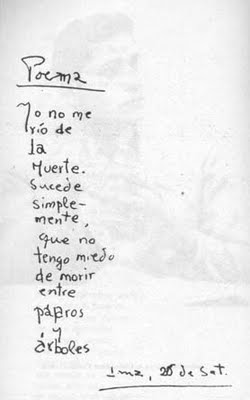 Poema
Yo no me
río de
la
Muerte.
Sucede
simple-
mente,
que no
tengo miedo
de morir
entre
pájaros
y
árboles
Lima, 26 de Set.